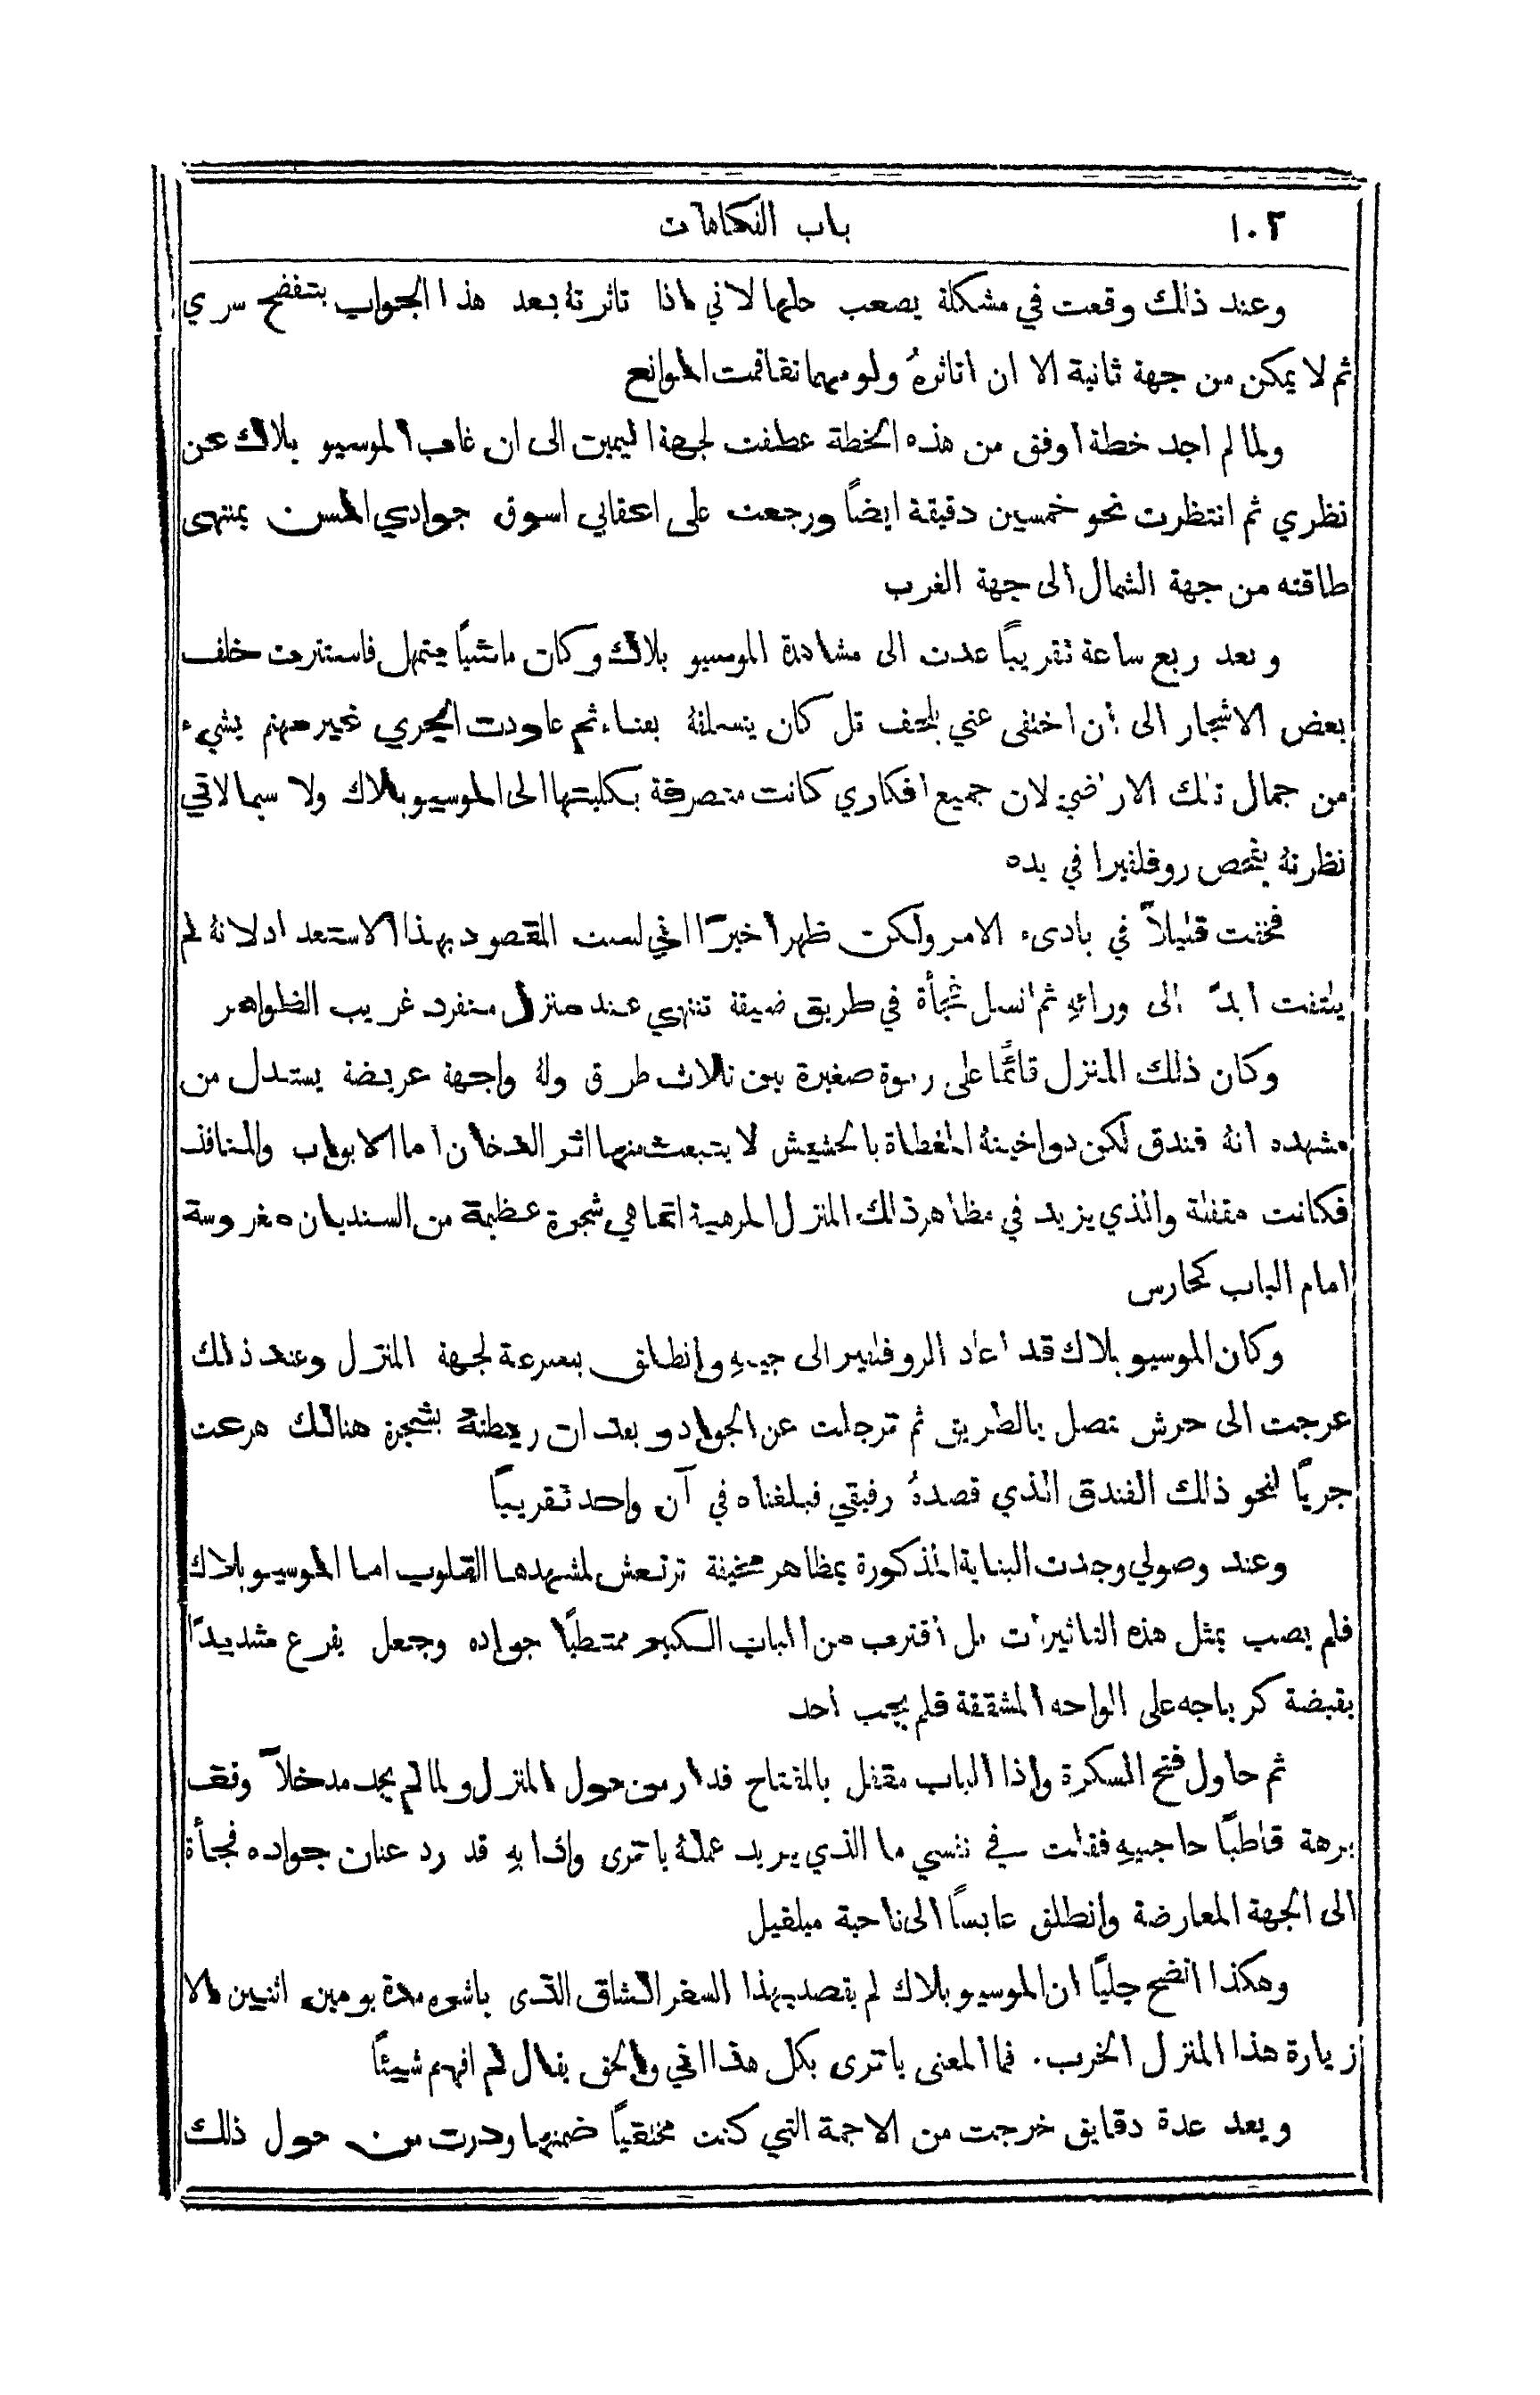 ١٠٢ باب الفكاهات
وعند ذلك وقعت في مشكلة يصعب حلها لاني اذا تاثرته بعد هذا الجواب يتفضح سري
ثم لا يمكن من جهة ثانية الا ان اتاثرهُ ولو مهما تفاقمت الموانع
ولما لم اجد خطة اوفق من هذه الخطة عطفت لجهة اليمين الى ان غاب الموسيو بلاك عن
نظري ثم انتظرت نحو خمسين دقيقة ايضاً ورجعت على اعقابي اسوق جوادي المسن بمنتهى
طاقته من جهة الشمال الى جهة الغرب
وبعد ربع ساعة تقريباً عدت الى مشاهدة الموسيو بلاك وكان ماشياً بتمهل فاستترت خلف
بعض الاشجار الى ان اختفى عني بلحف تل كان يتسلقهُ بعناء ثم عاودت الجري غير مهتم بشيء
من جمال تلك الاراضي لان جميع افكاري كانت منصرفة بكليتها الى الموسيو بلاك ولا سيما لاني
نظرتهُ يفحص روفلفيرا في يده
فخفت قليلاً في بادىء الامر ولكن ظهر اخيرًا اني لست المقصود بهذا الاستعداد لانهُ لم
يلتفت ابدً الى ورائهِ ثم انسل فجأة في طريق ضيقة تنتهي عند منزل منفرد غريب الظواهر
وكان ذلك المنزل قائمًا على ربوة صغيرة بين ثلاث طرق ولهُ واجهة عريضة يستدل من
مشهده انهُ فندق لكن دواخينهُ المغطاة بالحشيش لا ينبعث منها اثر الدخان اما الابواب والمنافذ
فكانت مقفلة والذي يزيد في مظاهر ذلك المنزل المرهبة انما هي شجرة عظيمة من السنديان مغروسة
امام الباب كحارس
وكان الموسيو بلاك قد اعاد الروفلفير الى جيبهِ وانطلق بسرعة لجهة المنزل وعند ذلك
عرجت الى حرش متصل بالطريق ثم ترجلت عن الجواد و بعد ان ربطتهُ بشجرة هنالك هرعت
جريًا لنحو ذلك الفندق الذي قصدهُ رفيقي فبلغناه في آن واحد تقريبًا
وعند وصولي وجدت البناية المذكورة بمظاهر مخيفة ترتعش لمشهدها القلوب اما الموسيو بلاك
فلم يصب بمثل هذه التاثيرات بل اقترب من الباب الكبير ممتطيًا جواده وجعل يقرع شديدًا
بقبضة كرباجه على الواحه المشققة فلم يجب احد
ثم حاول فتح السكرة واذا الباب مقفل بالمفتاح فدار من حول المنزل ولما لم يجد مدخلاً وقف
برهة قاطبًا حاجبيهِ فقلت في نفسي ما الذي يريد عملهُ يا ترى واذا بهِ قد رد عنان جواده فجأة
الى الجهة المعارضة وانطلق عابسًا الى ناحية ميلقيل
وهكذا اتضح جليًا ان الموسيو بلاك لم يقصد بهذا السفر الشاق الذي باشره مدة يومين اثنين الا
زيارة هذا المنزل الخرب. فما المعنى يا ترى بكل هذا اني والحق يقال لم افهم شيئًا
وبعد عدة دقايق خرجت من الاجمة التي كنت مختفيًا ضمنها ودرت من حول ذلك